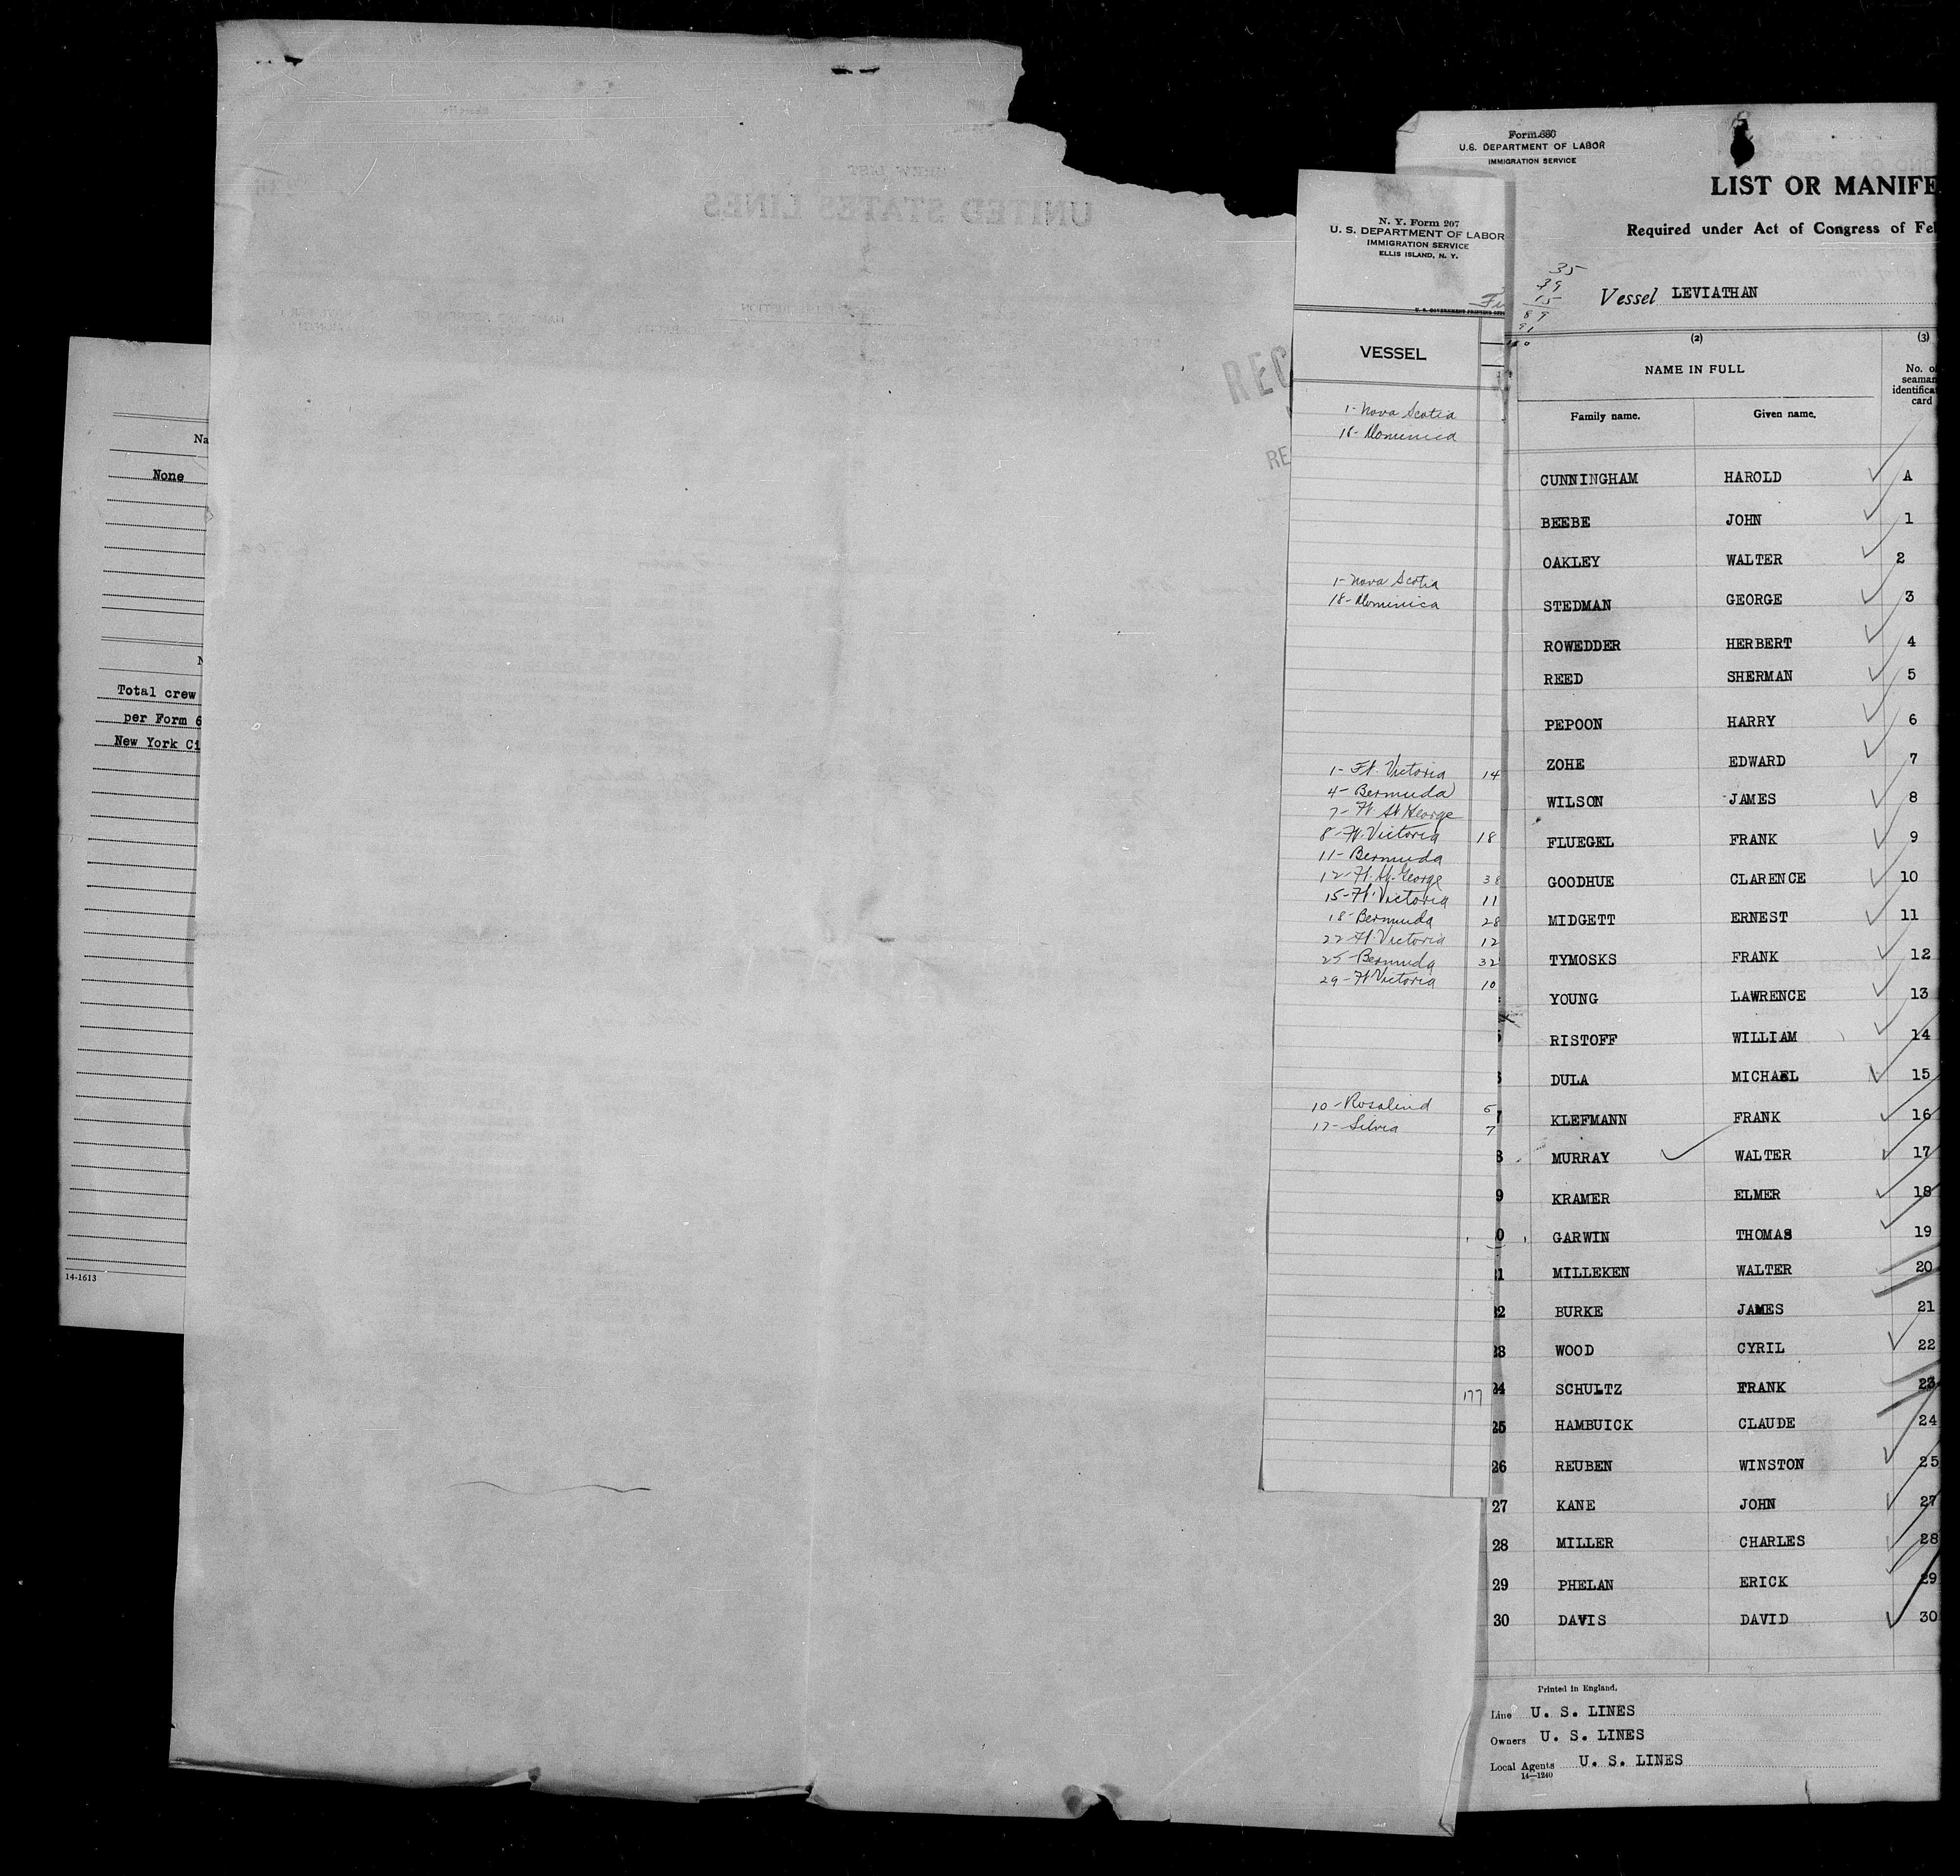 Na
None
N
Total crew
per Form 6
New York Ci
14-1613
CREW LIST
UNITED STATES LINES
REC
RE
N. Y. Form 207
U. S. DEPARTMENT OF LABOR
IMMIGRATION SERVICE
ELLIS ISLAND, N. Y.
VESSEL
1- Nova Scotia
18- Dominica
1- Nova Scotia
18- Dominica
1- Ft. Victoria 14
4- Bermuda
7- Ft. St George
8- Ft. Victoria 18
11- Bermuda
12- Ft. St. George 38
15- Ft. Victoria 11
18- Bermuda 28
22- Ft. Victoria 12
25- Bermuda 32
29- Ft Victoria 10
10- Rosalind 6
17- Silvia 7
177
Form 680
U.S. DEPARTMENT OF LABOR
IMMIGRATION SERVICE
LIST OR MANIFE
Required under Act of Congress of Fe
35
39
15
89
91
Vessel LEVIATHAN
(2) (3)
NAME IN FULL
No. o
seaman
identifica
card
Family name. Given name.
CUNNINGHAM HAROLD A
BEEBE JOHN 1
OAKLEY WALTER 2
STEDMAN GEORGE 3
ROWEDDER HERBERT 4
REED SHERMAN 5
PEPOON HARRY 6
ZOHE EDWARD 7
WILSON JAMES 8
FLUEGEL FRANK 9
GOODHUE CLARENCE 10
MIDGETT ERNEST 11
TYMOSKS FRANK 12
YOUNG LAWRENCE 13
RISTOFF WILLIAM 14
DULA MICHAEL 15
KLEFMANN FRANK 16
8 MURRAY WALTER 17
9 KRAMER ELMER 18
0 GARWIN THOMAS 19
1 MILLEKEN WALTER 20
22 BURKE JAMES 21
23 WOOD CYRIL 22
24 SCHULTZ FRANK 23
25 HAMBUICK CLAUDE 24
26 REUBEN WINSTON 25
27 KANE JOHN 27
28 MILLER CHARLES 28
29 PHELAN ERICK 29
30 DAVIS DAVID 30
Printed in England.
Line U. S. LINES
Owners U. S. LINES
Local Agents U. S. LINES
14-1240